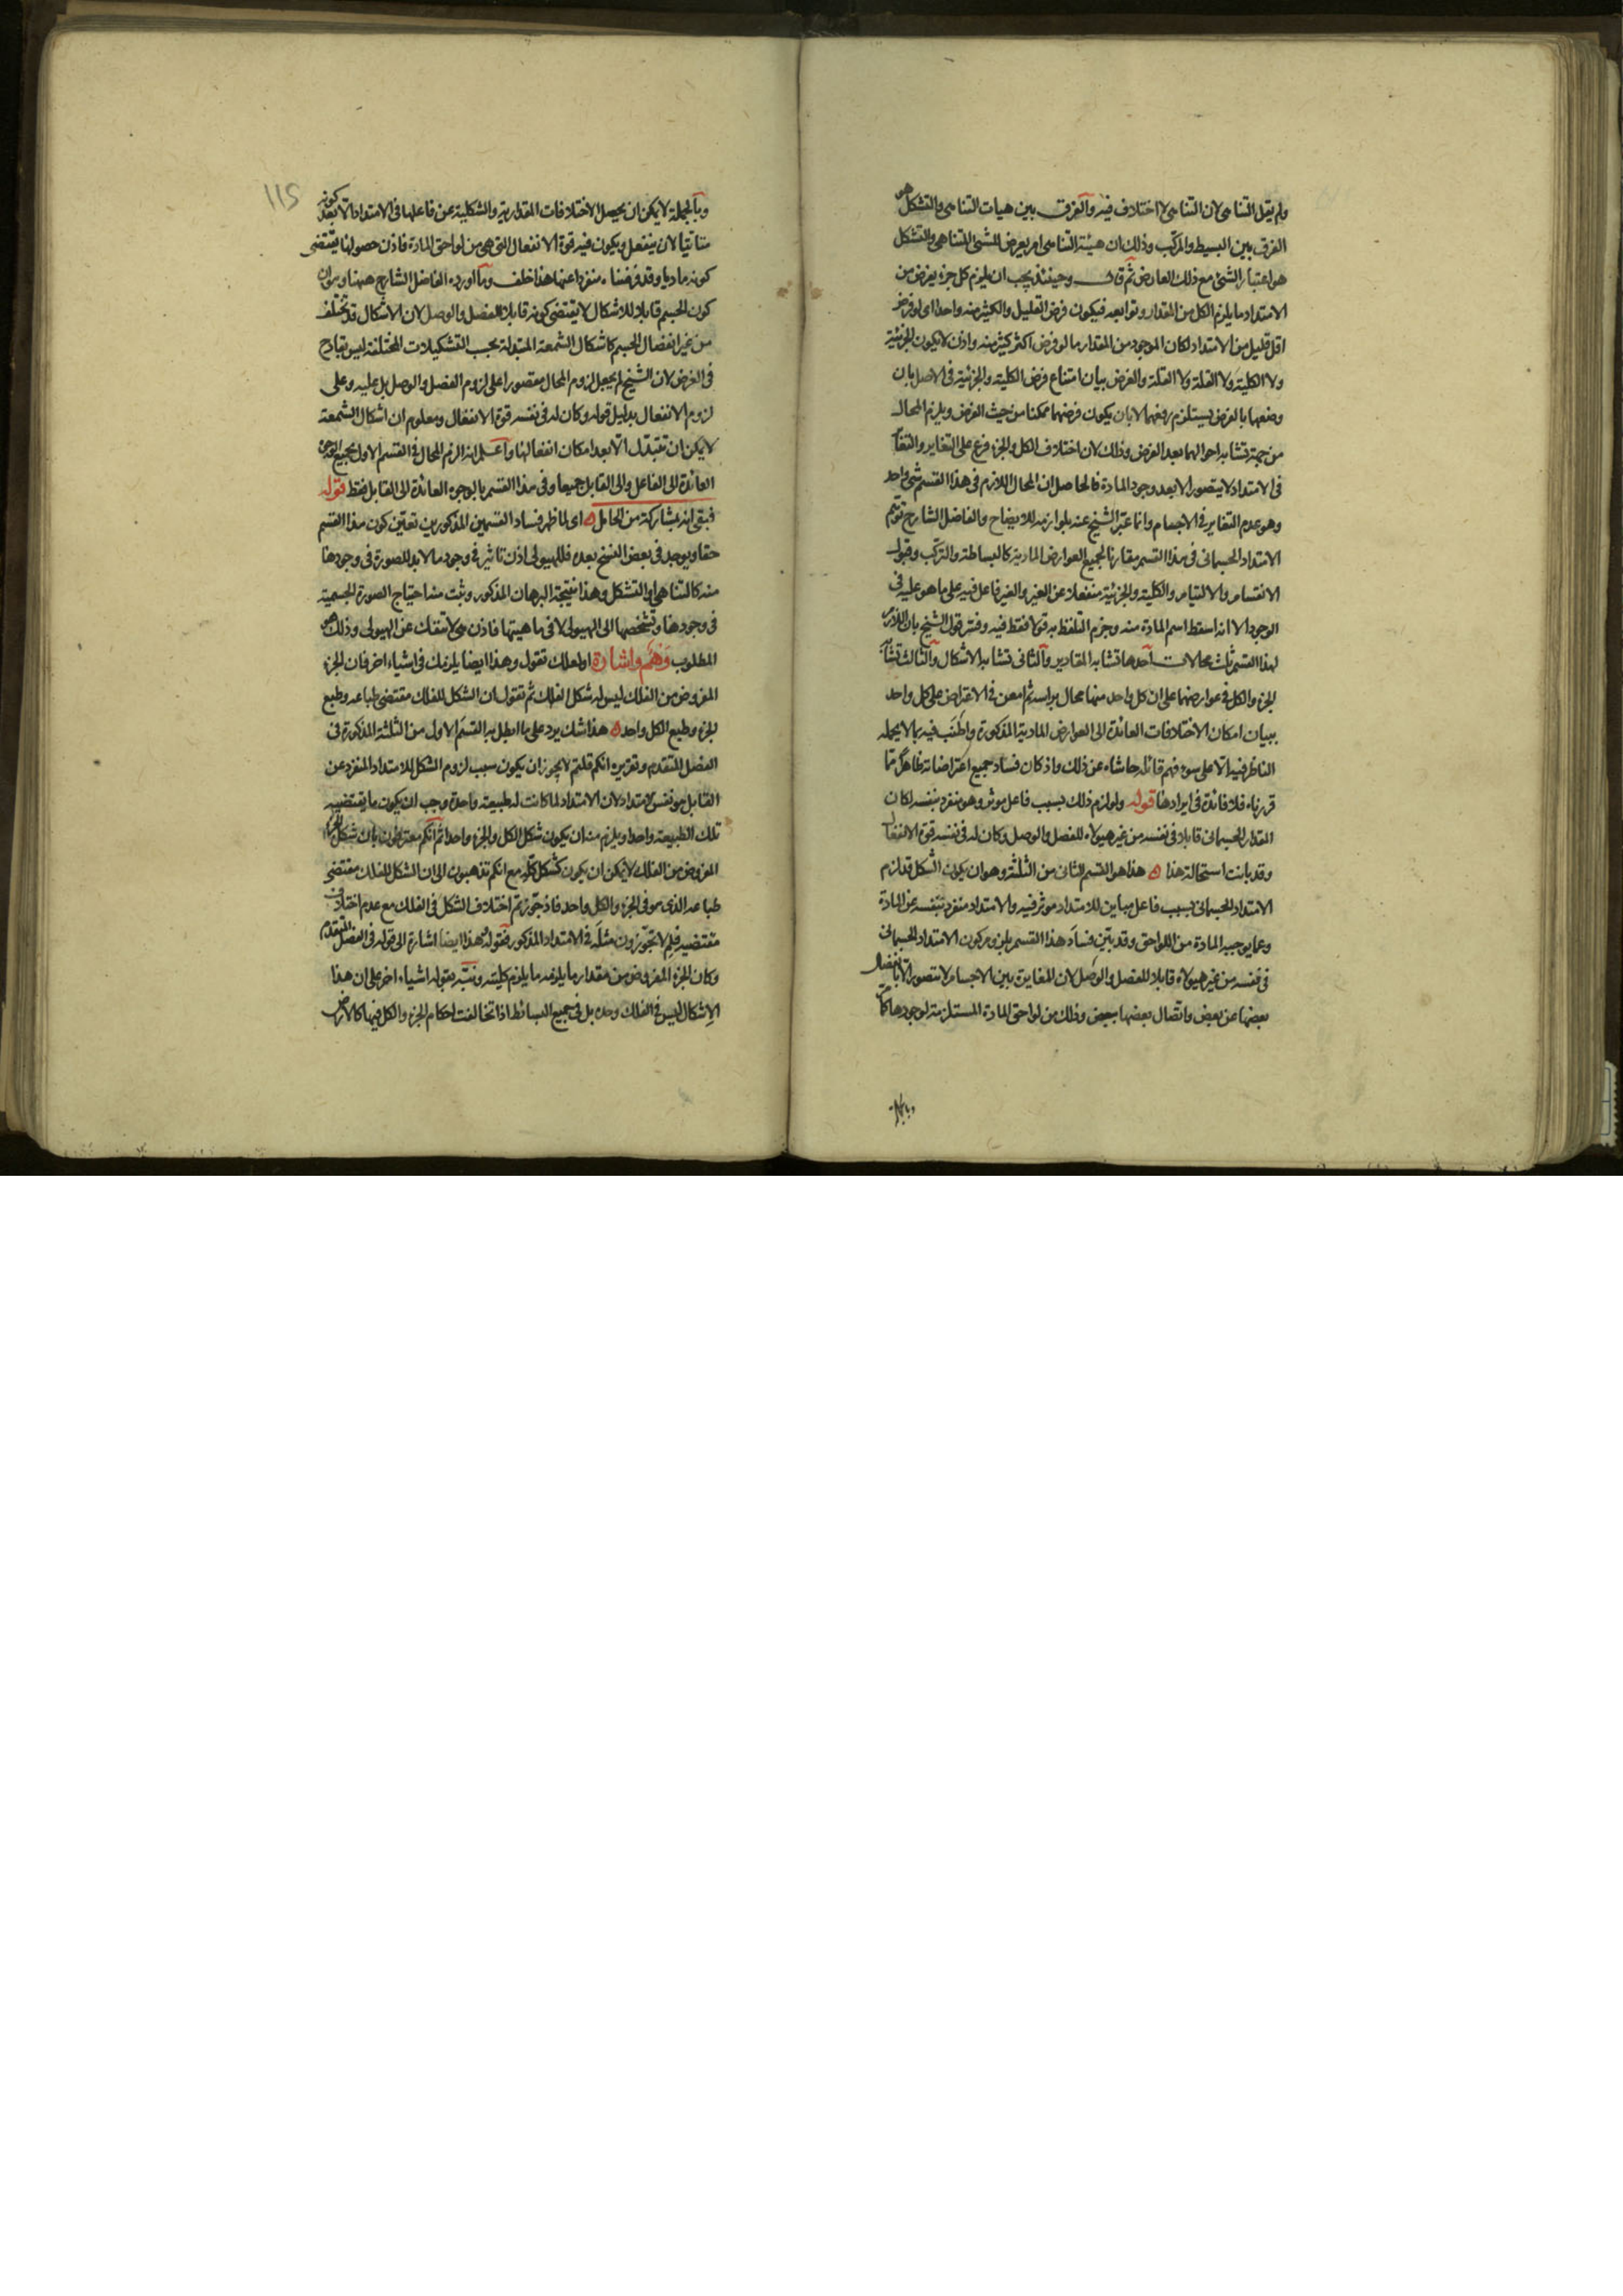 ولم يقل التناهى لان التناهى لا اختلاف فيه والفرق بين هيات التناهى والتشكل هو
الفرق بين البسيط والمركب وذلك ان هيئة التناهى امر يعرض للشئ المتناهى والتشكل
هو اعتبار الشئ مع ذلك العارض ثم قال وحينئذ يجب ان يلزم كل جزء يفرض من
الامتداد ما يلزم الكل من المقدار وتوابعه فيكون فرض القليل والكثير منه واحدا اى لو فرض
اقل قليل من الامتداد لكان الموجود من المقدار ما لو فرض اكثر كثير منه واذن لا يكون الجزئية
ولا الكلية ولا القلة ولا والغرض بيان امتناع فرض الكلية والجزئية فى الاصل بان
وضعهما بالفرض يستلزم رفعهما لا بان يكون فرضهما ممكنا من حيث الفرض ويلزم المحال
من جهة تشابه احوالهما بعد الفرض وذلك لان اختلاف الكل والجزء فرع على التغاير والتغاير
فى الامتداد لا يتصور الا بعد وجود المادة فالحاصل ان المحال اللازم فى هذا القسم شئ واحد
وهو عدم التغاير فى الاجسام وانما عبر الشيخ عنه بلوازمه للايضاح والفاضل الشارح توهم
الامتداد الجسمانى فى هذا القسم مقارنا لجميع العوارض المادية كالبساطة والتركب وقبول
الانقسام والالتيام والكلية والجزئية منفعلا عن الغير والغير فاعل فيه على ما هو عليه فى
الوجود الا انه اسقط اسم المادة منه وجزم التلفظ به قولا فقط فيه وفسر قول الشيخ بان اللازم
لهذا القسم ثلث محالات احدها تشابه المقادير والثانى تشابه الاشكال والثالث تشابه
الجزء والكل فى عوارضهما على ان كل واحد منها محال براسه ثم امعن فى الاعتراض على كل واحد
ببيان امكان الاختلافات العائدة الى العوارض المادية المذكورة واطنب فيه بما لا يحمله
الناظر فيه الا على سوء فهم قائله حاشاه عن ذلك واذ كان فساد جميع اعتراضاته ظاهرا مما
قررناه فلا فائدة فى ايرادها قوله ولو لزم ذلك بسبب فاعل موثر وهو منفرد بنفسه لكان
المقدار الجسمانى قابلا فى نفسه من غير هيولاه للفصل والوصل وكان له فى نفسه قوة الانفعال
وقد بانت استحالة هذا ه هذا هو القسم الثانى من الثلثة وهو ان يكون الشكل قد لزم
الامتداد الجسمانى بسبب فاعل مباين للامتداد موثر فيه والامتداد منفرد بنفسه عن المادة
وعما يوجبه المادة من اللواحق وقد بين فساد هذا القسم بلزوم كون الامتداد الجسمانى
فى نفسه من غير هيولاه قابلا للفصل والوصل لان المغايرة بين الاجسام لا تتصور الا بانفصال
بعضها عن بعض واتصال بعضها ببعض وذلك من لواحق المادة المستلزمة لوجودها كما مر
وبالجملة
115
وبالجملة لا يمكن ان يحصل الاختلافات المقدارية والشكلية عن فاعلها فى الامتداد الا بعد كونه
متاتيا لان ينفعل ويكون فيه قوة الانفعال التى هى من لواحق المادة فاذن حصولها يقتضى
كونه ماديا وقد فرضناه منفردا عنها هذا خلف وما اورده الفاضل الشارح ههنا وهو ان
كون الجسم قابلا للاشكال لا يقتضى كونه قابلا للفصل والوصل لان الاشكال قد تختلف
من غير انفصال الجسم كاشكال الشمعة المتبدلة بحسب التشكيلات المختلفة ليس بقادح
فى الغرض لان الشيخ لم يجعل لزوم المحال مقصورا على لزوم الفصل والوصل بل عليه وعلى
لزوم الانفعال بدليل قوله وكان له فى نفسه قوة الانفعال ومعلوم ان اشكال الشمعة
لا يمكن ان تتبدل الا بعد امكان انفعالها واعلم انه الزم المحال فى القسم الاول بجميع الوجوه
العائدة الى الفاعل والى القابل جميعا وفى هذا القسم بالوجوه العائدة الى القابل فقط قوله
فبقى انه بمشاركة من الحامل ه اى لما ظهر فساد القسمين المذكورين تعين كون هذا القسم
حقا ويوجد فى بعض النسخ بعده فللهيولى اذن تاثير فى وجود ما لا بد للصورة فى وجودها
منه كالتناهى والتشكل وهذا نتيجة البرهان المذكور وثبت منه احتياج الصورة الجسمية
فى وجودها وتشخصها الى الهيولى لا فى ماهيتها فاذن هى لا تنفك عن الهيولى وذلك هو
المطلوب وهم واشارة او لعلك تقول وهذا ايضا يلزمك فى اشياء اخر فان الجزء
المفروض من الفلك ليس له شكل الفلك ثم تقول ان الشكل للفلك مقتضى طباعه وطبع
الجزء وطبع الكل واحد ه هذا شك يرد على ما ابطل به القسم الاول من الثلثة المذكورة فى
الفصل المتقدم وتقريره انكم قلتم لا يجوز ان يكون سبب لزوم الشكل للامتداد المنفرد عن
القابل هو نفس الامتداد لان الامتداد لما كانت له طبيعة واحدة وجب ان يكون ما يقتضيه
تلك الطبيعة واحدا ويلزم منه ان يكون شكل الكل والجزء واحدا ثم انكم معترفون بان شكل الجزء
المفروض من الفلك لا يمكن ان يكون كشكل كله مع انكم تذهبون الى ان الشكل للفلك مقتضى
طباعه الذى هو فى الجزء والكل واحد فاذ جوزتم اختلاف الشكل فى الفلك مع عدم اختلاف
مقتضيه فلم لا تجوزون مثله فى الامتداد المذكور فقوله هذا ايضا اشارة الى قوله فى الفصل المتقدم
وكان الجزء المفروض من مقدار ما يلزمه ما يلزم كليته ونبه بقوله اشياء اخر على ان هذا
الاشكال ليس فى الفلك وحده بل فى جميع البسائط اذا تخالفت احكام الجزء والكل فيها كالارض